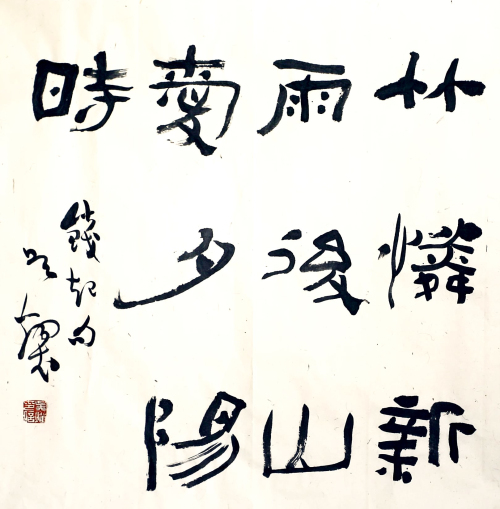 竹憐新
雨後山
愛夕陽
時
錢起句
吴